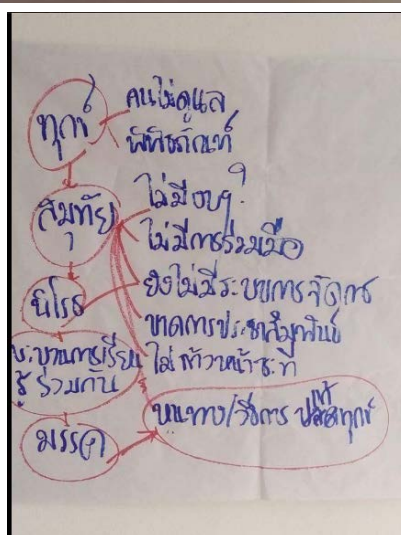 ทุกข์
คนไม่ดูแล
พิพิธภัณฑ์
สมุทัย
ไม่มีงบฯ?
ไม่มีการร่วมมือ
นิโรธ
ยังไม่มีระบบการจัดการ
ขาดการประชาสัมพันธ์
ไม่
บ.บวนการเรียน
รู้ ร่วมกัน
มรรค
หนทาง/วิธีการ ทุกข์